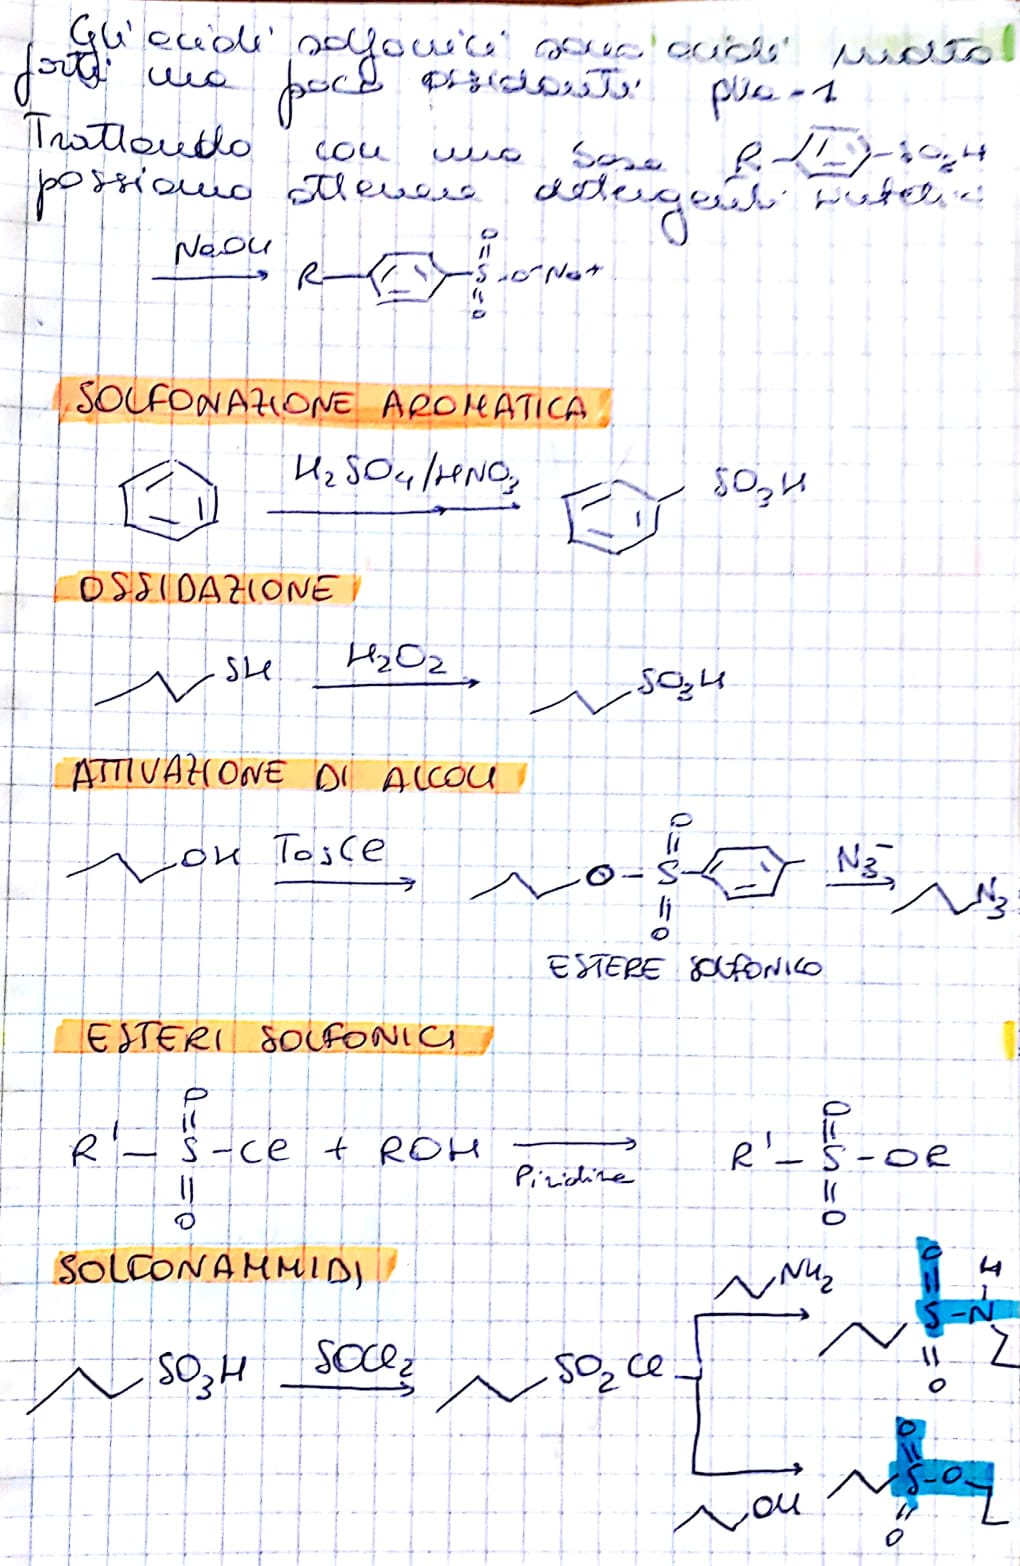 Gli acidi solfonici sono acidi molto
forti ma poco ossidanti pKa -1
Trattando con una base R SO3H
possiamo ottenere detergenti sintetici
NaOH R O S O O-Na+
SOLFONAZIONE AROMATICA
H2SO4/HNO3 SO3H
OSSIDAZIONE
SH H2O2 SO3H
ATTIVAZIONE DI ALCOLI
OH TosCl O-S O O N3- N3
ESTERE SOLFONICO
ESTERI SOLFONICI
R'-S-Cl + ROH Piridina R'-S-OR
O O O O
SOLFONAMMIDI
NH2 O S-N H O
SO3H SOCl2 SO2Cl
OH O S-O O